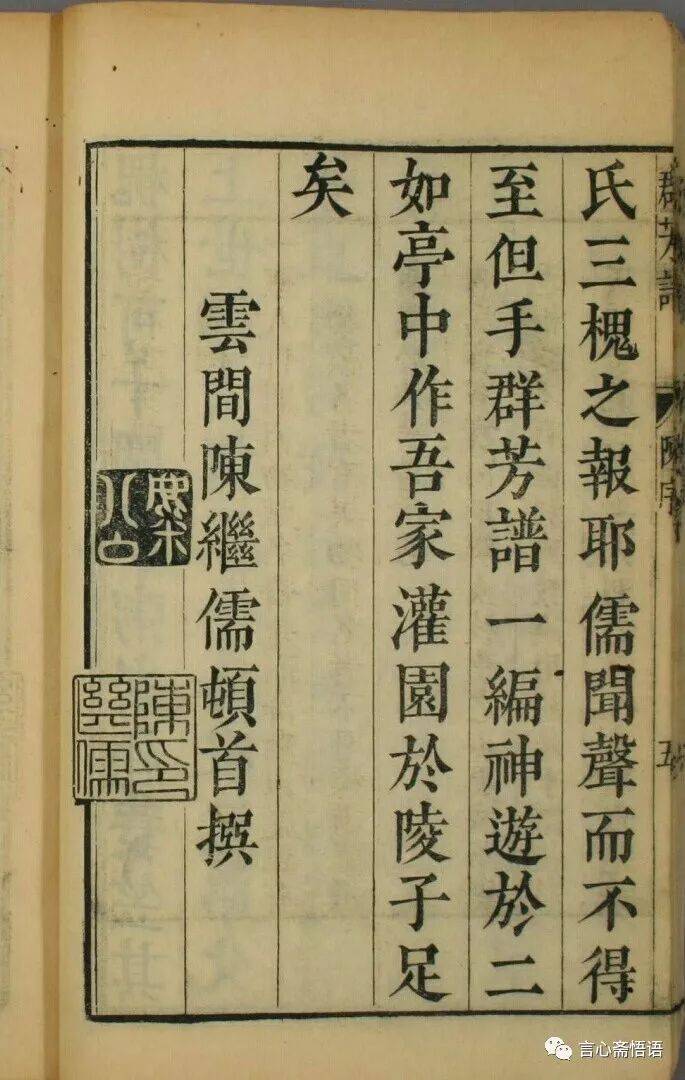 群芳譜
陳序
五
氏三槐之報耶儒聞聲而不得
至但手群芳譜一編神遊於二
如亭中作吾家灌園於陵子足
矣
雲間陳繼儒頓首撰
陳繼儒印
言心斋悟语